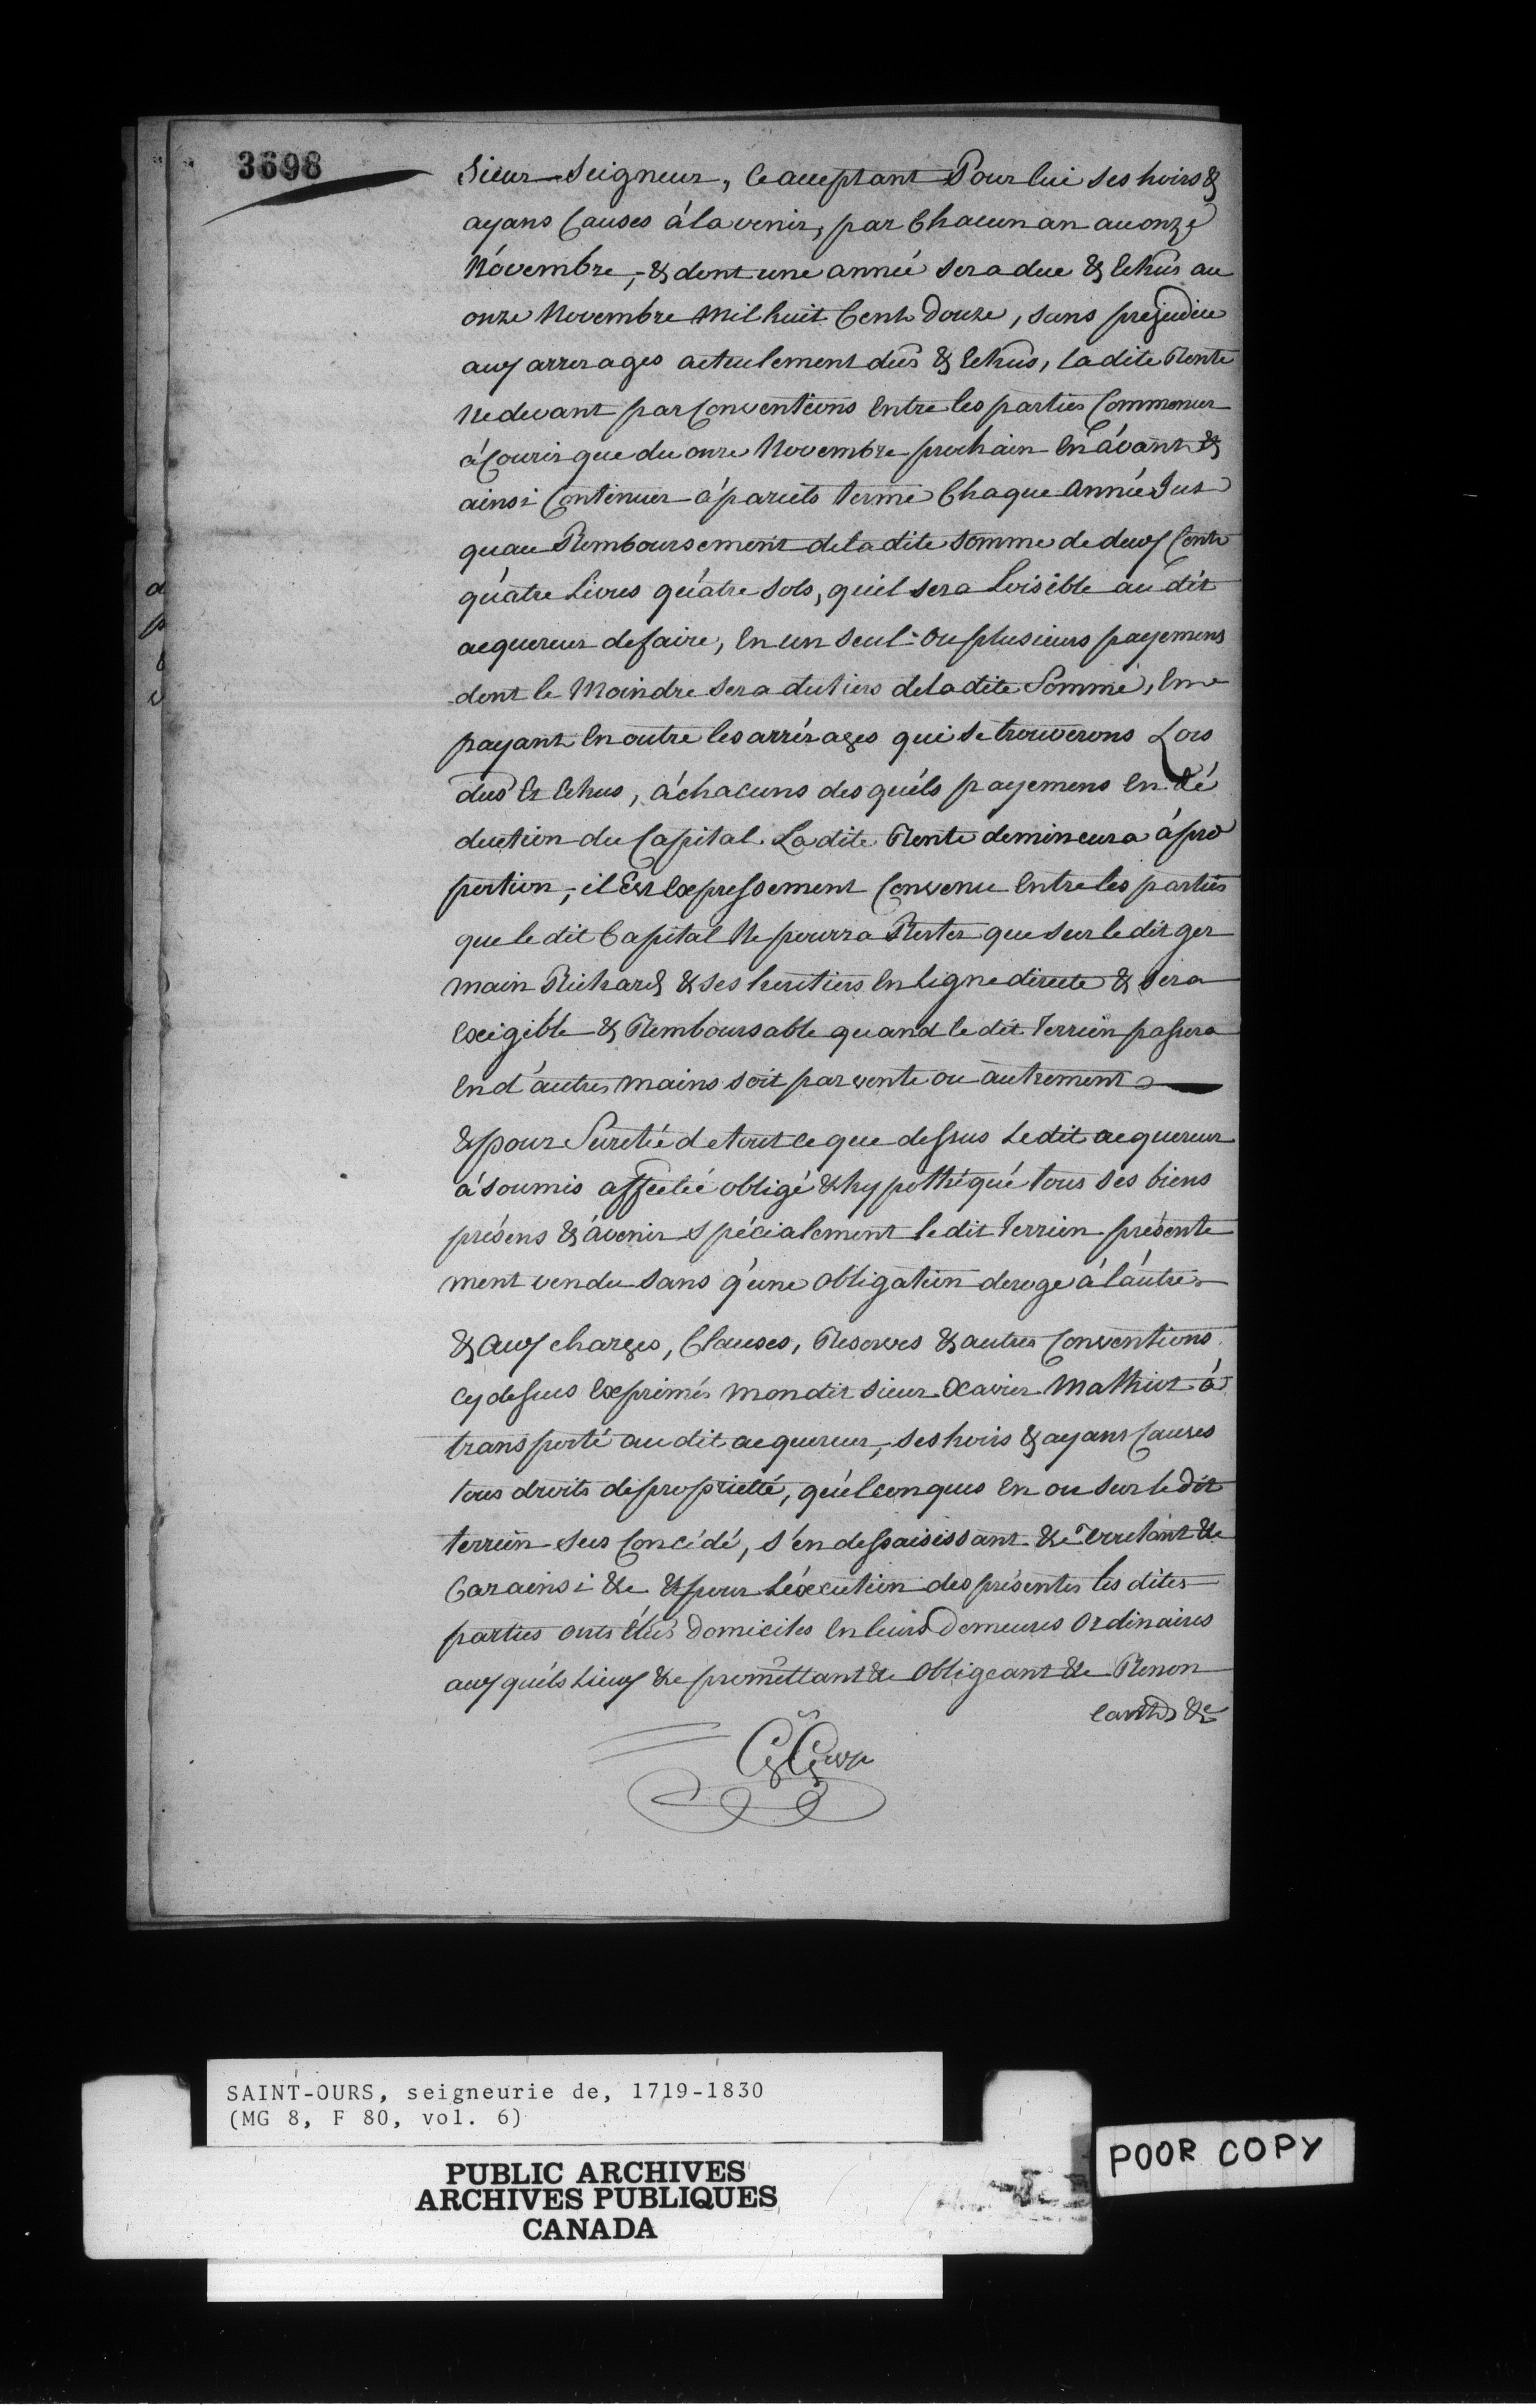 3698
Sieur Seigneur, ce acceptant Pour lui ses hoirs &
ayans Causes à lavenir, par Chacun an au onze
Novembre, & dont une année sera due & Echüs au
onze Novembre Mil huit Cent Douze, sans prejudice
aux arrerages actuelement dûs & Echus, ladite Rente
Nedevant par Conventions Entre les parties Commencer
à Courir que du onze Novembre prochain En àvant &
ainsi Continuer à pareils terme Chaque Année Jus
quau Remboursement deladite Somme de deux Cents
quàtre Livres quàtre Sols, quil sera Loisible au dit
acquereur defaire, En un seul ou plusieurs payemens
dont le Moindre sera dutiers deladite Somme, En
payant En outre les arrérages qui se trouverons Lors
dus & Echus, à chacuns desquéls payemens En dé
duction du Capital. Ladite Rente demineura à pro
portion, il Est Expressement Convenu Entre les parties
que le dit Capital Ne pourra Rester que sur ledit ger
main Richard & ses heritiers En Ligne directe & sera
Exigible & Remboursable quand le dit Terrein passera
En d'autres mains soit par vente ou autrement
& pour Suretié detout ce que dessus Ledit acquereur
à soumis affectéé obligé & hypothéqué tous ses biens
présens & àvenir spécialement ledit Terrein présente
ment vendu sans q'une obligation deroge à l'autre
& aux charges, Clauses, Reserves & autres Conventions
cy dessus Exprimés mondit sieur Xavier Mathiot à
transporté audit acquereur, ses hoirs & ayans Causes
tous droits depropriétté, quélconques En ou sur le dit
terrein sus Concédé, s'en dessaisissant &c Voulant &c
Car ainsi &c & pour L'éxecution des présentes les dites
parties onts élûs Domiciles En leurs Demeures Ordinaires
aux quéls Lieux &c promettant &c Obligeant &c Renon
cants &c
SAINT-OURS, seigneurie de, 1719-1830
(MG 8, F 80, vol. 6)
PUBLIC ARCHIVES
ARCHIVES PUBLIQUES
CANADA
POOR COPY